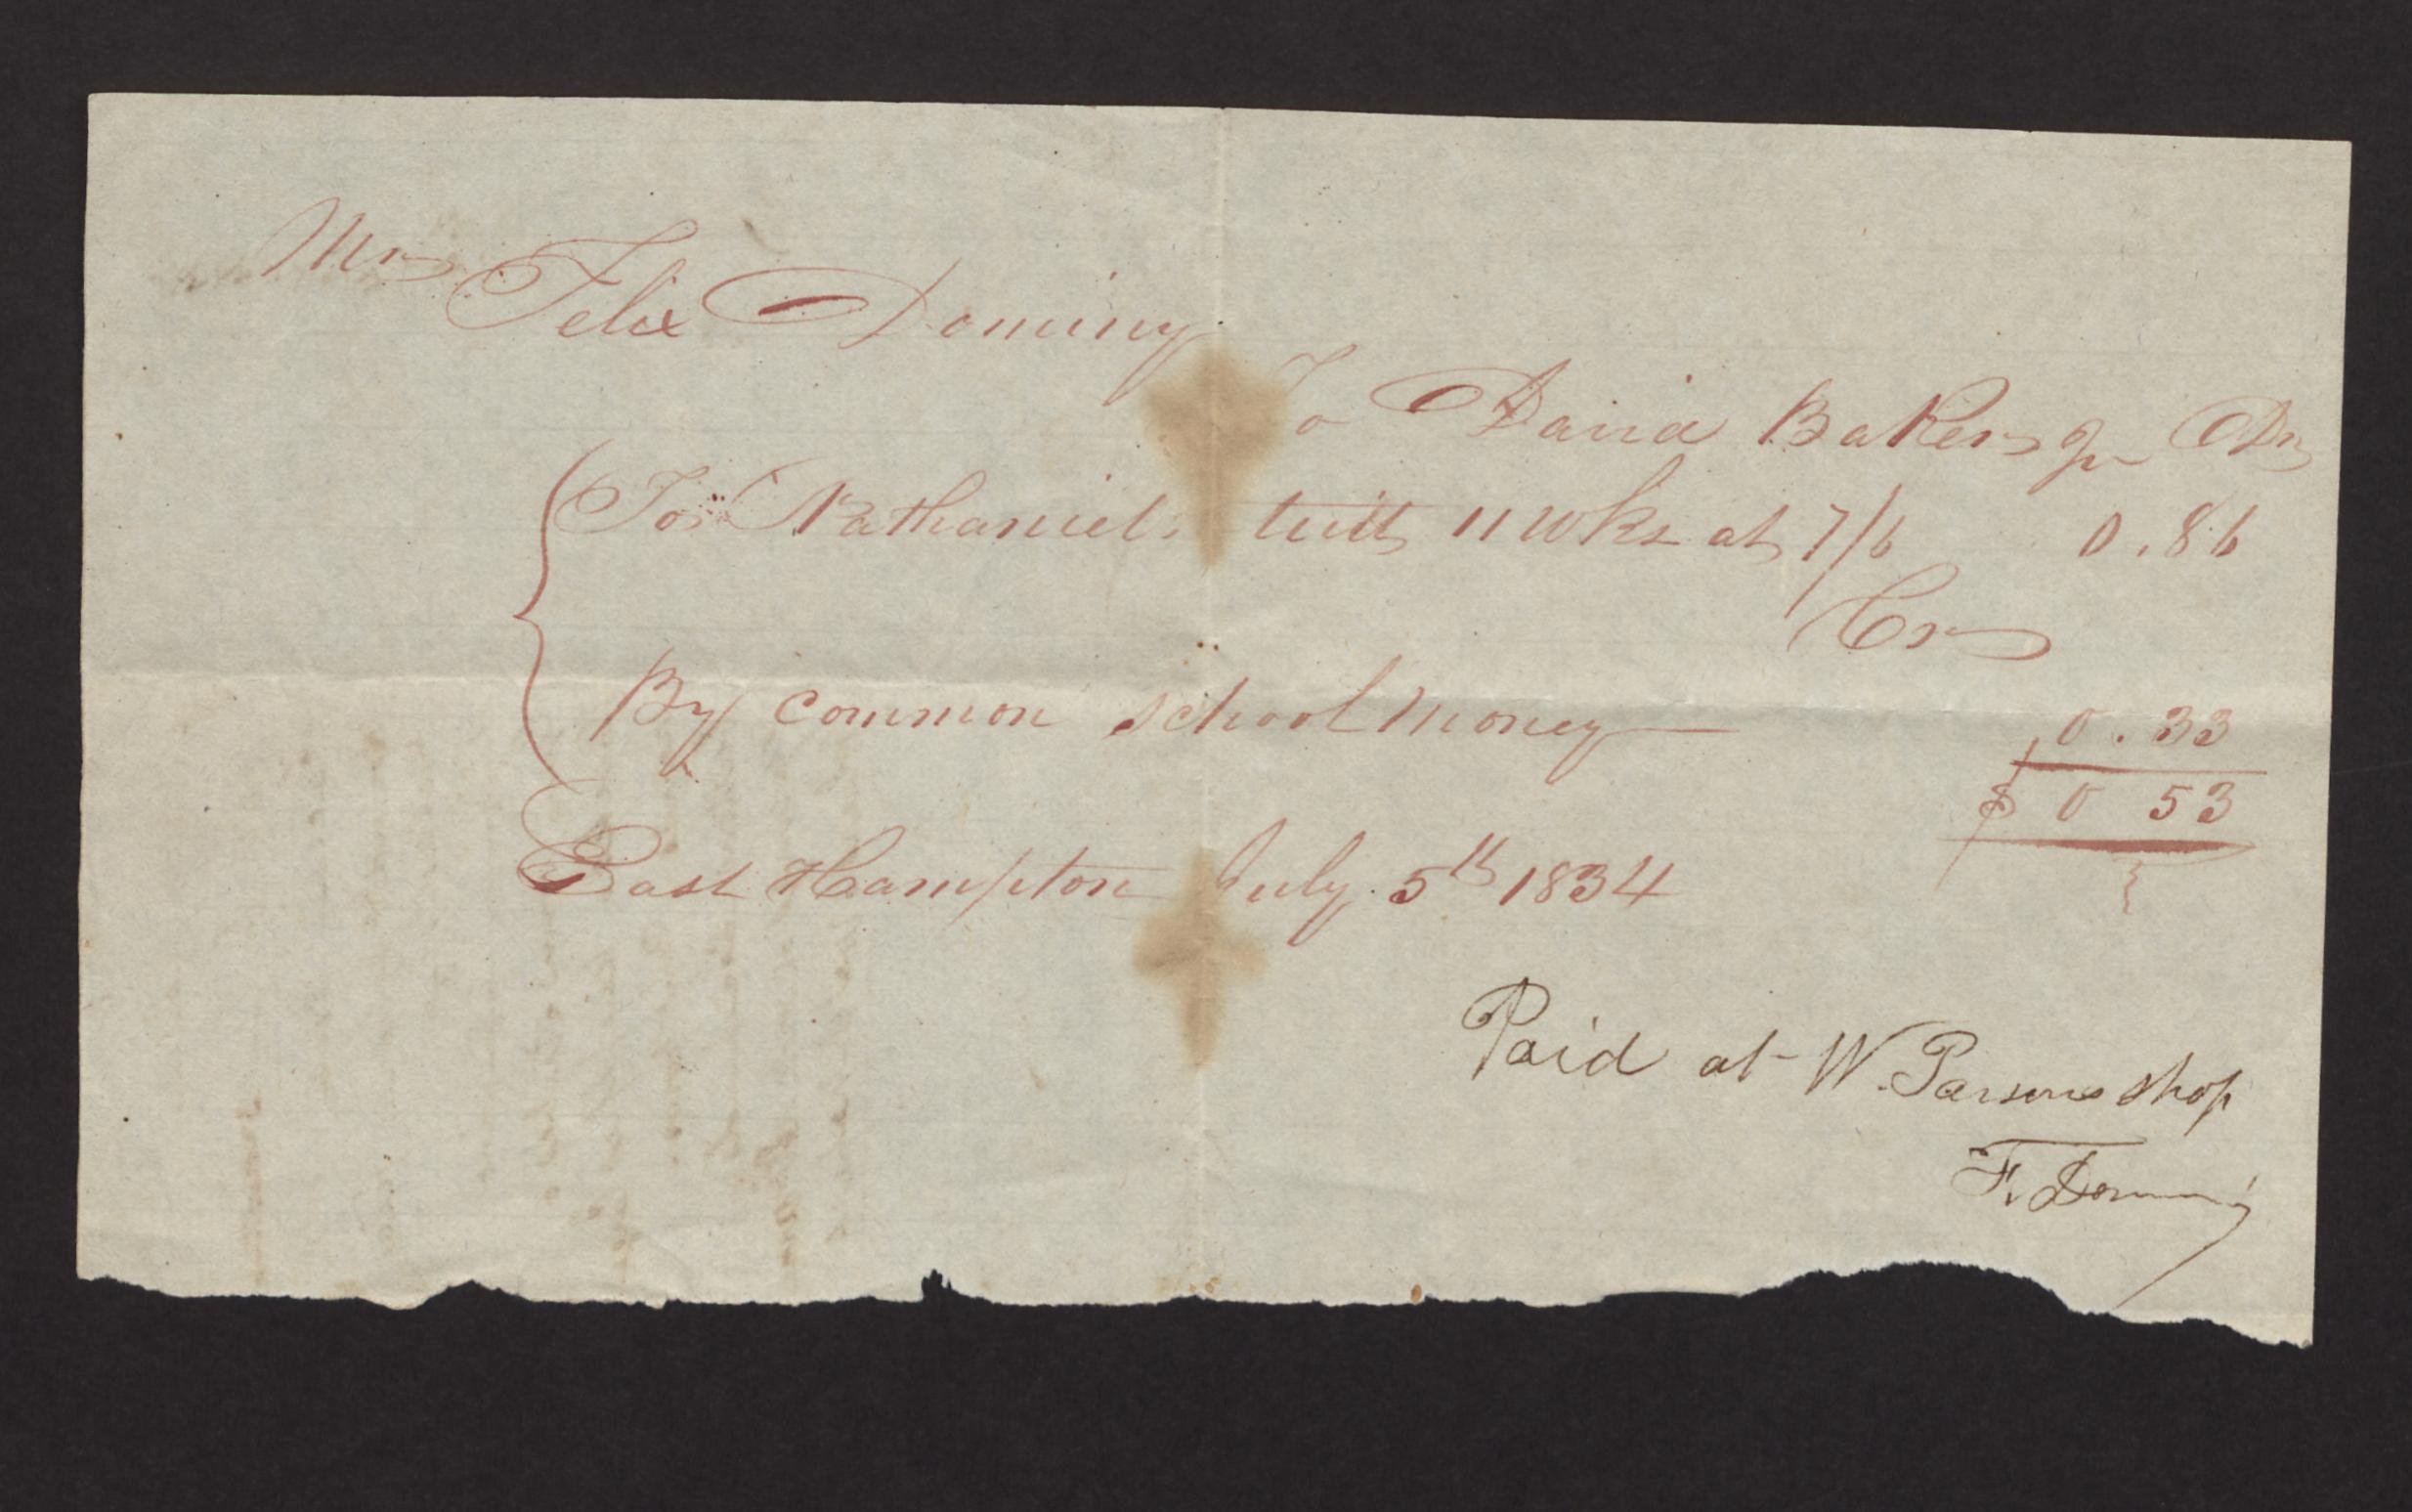 Mr Felix Dominy
To David Baker Jr Dr
To Nathaniel tuit 11 wks at 7/6 0.86
Cr
By common school money — 0.33
$ 0 53
East Hampton July 5th 1834
Paid at W. Parsons shop
F. Dominy